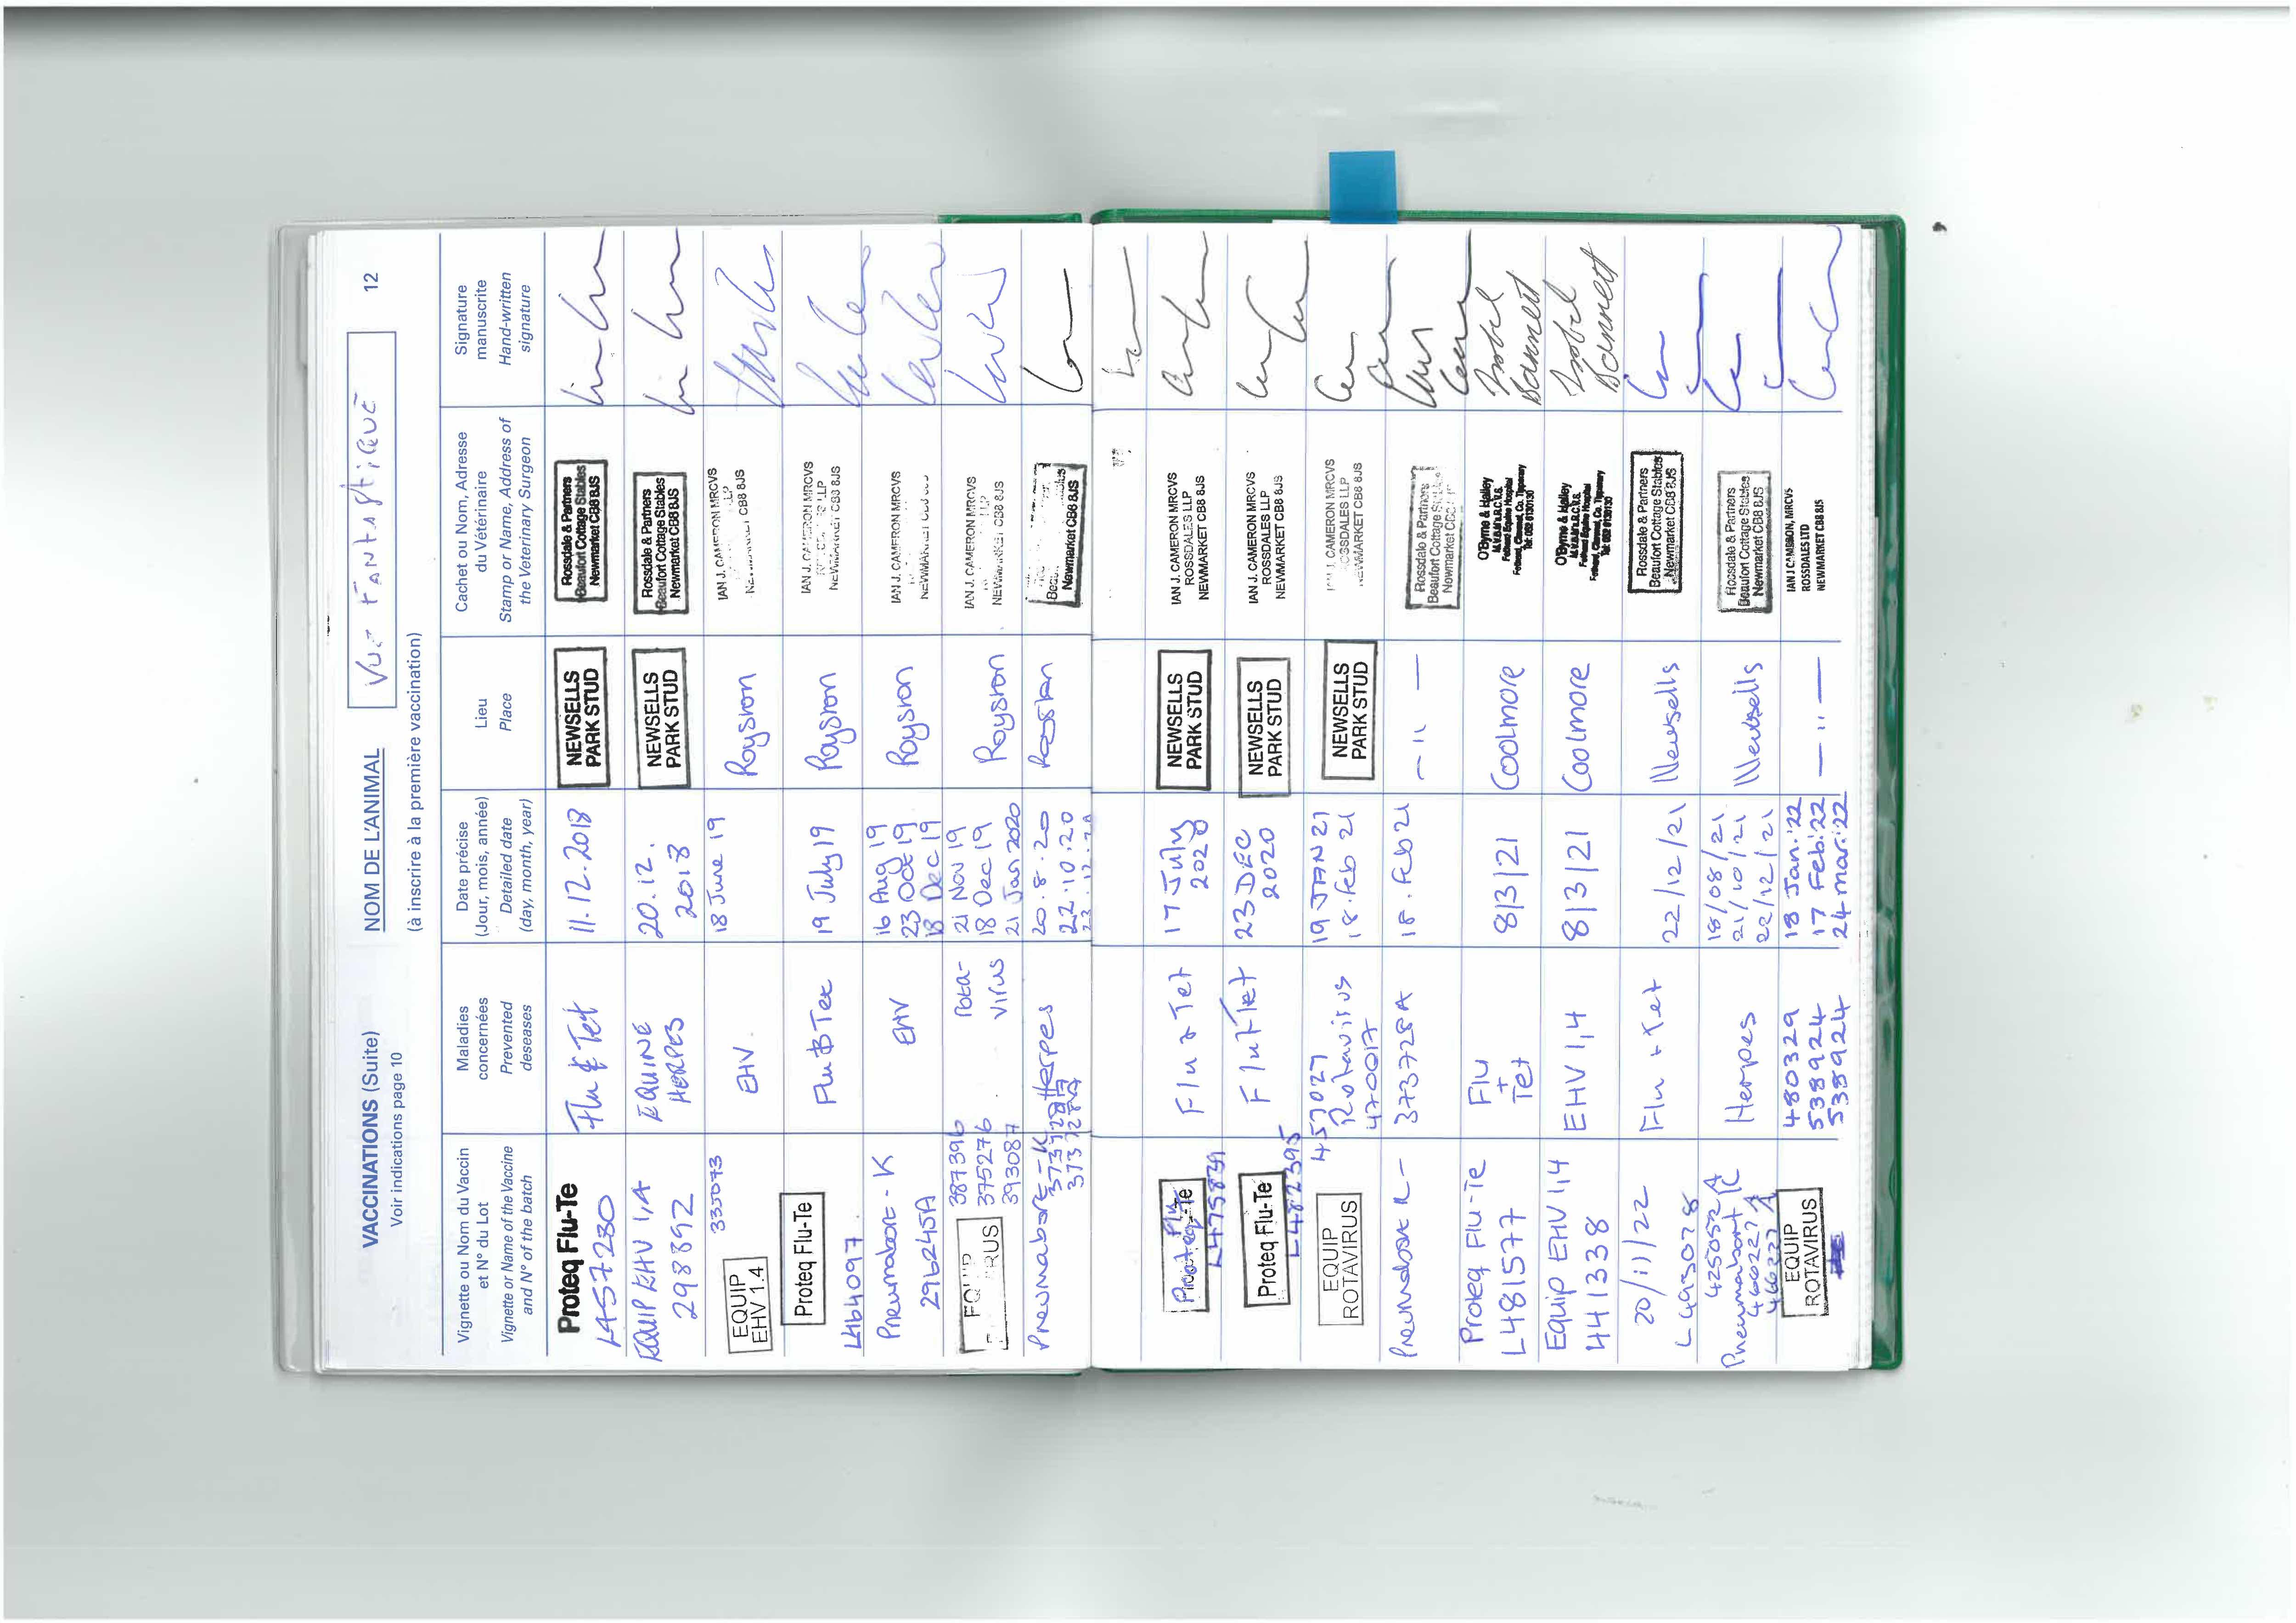 VACCINATIONS (Suite)
Voir indications page 10
NOM DE L'ANIMAL
(à inscrire à la première vaccination)
VUE FANTASTIQUE
12
Vignette ou Nom du Vaccin
et N° du Lot
Vignette or Name of the Vaccine
and N° of the batch
Maladies
concernées
Prevented
deseases
Date précise
(Jour, mois, année)
Detailed date
(day, month, year)
Lieu
Place
Cachet ou Nom, Adresse
du Vétérinaire
Stamp or Name, Address of
the Veterinary Surgeon
Signature
manuscrite
Hand-written
signature
Proteq Flu-Te
L457230
Flu & Tet
11.12.2018
NEWSELLS
PARK STUD
Rossdale & Partners
Beaufort Cottage Stables
Newmarket CB8 8JS
EQUIP EHV 1,4
298892
EQUINE
HERPES
20.12.
2018
NEWSELLS
PARK STUD
Rossdale & Partners
Beaufort Cottage Stables
Newmarket CB8 8JS
335073
EQUIP
EHV 1.4
EHV
18 June 19
Royston
IAN J. CAMERON MRCVS
LLP
NEWMARKET CB8 8JS
Proteq Flu-Te
L464097
Flu & Tet
19 July 19
Royston
IAN J. CAMERON MRCVS
LLP
NEWMARKET CB8 8JS
Pneumabort-K
296245A
EHV
16 Aug 19
23 Oct 19
18 Dec 19
Royston
IAN J. CAMERON MRCVS
NEWMARKET
EQUIP
387396
375276
393087
Rota-
virus
21 Nov 19
18 Dec 19
21 Jan 2020
Royston
IAN J. CAMERON MRCVS
NEWMARKET CB8 8JS
Pneumabort-K
Herpes
20.8.20
22.10.20
Royston
Newmarket CB8 8JS
Proteq-Te
L475839
Flu & Tet
17 July
2020
NEWSELLS
PARK STUD
IAN J. CAMERON MRCVS
ROSSDALES LLP
NEWMARKET CB8 8JS
Proteq Flu-Te
L482395
Flu + Tet
23 DEC
2020
NEWSELLS
PARK STUD
IAN J. CAMERON MRCVS
ROSSDALES LLP
NEWMARKET CB8 8JS
EQUIP
ROTAVIRUS
457027
Rotavirus
470017
19 JAN 21
18. Feb 21
NEWSELLS
PARK STUD
IAN J. CAMERON MRCVS
ROSSDALES LLP
NEWMARKET CB8 8JS
Pneumabort K-
373728A
18. Feb 21
— " —
Rossdale & Partners
Beaufort Cottage Stables
Newmarket
Proteq Flu-Te
L481577
Flu
+
Tet
8/3/21
Coolmore
O'Byrne & Halley
M.V.B. M's.R.C.V.S.
Fethard Equine Hospital
Fethard, Clonmel, Co. Tipperary
Tel: 052 6130130
Isobel
Barnett
Equip EHV 1,4
441338
EHV 1,4
8/3/21
Coolmore
O'Byrne & Halley
M.V.B. M's.R.C.V.S.
Fethard Equine Hospital
Fethard, Clonmel, Co. Tipperary
Tel: 052 6130130
Isobel
Barnett
20/11/22
L493078
Flu + Tet
22/12/21
Newsells
Rossdale & Partners
Beaufort Cottage Stables
Newmarket CB8 8JS
425052A
Pneumabort K
466227A
466227A
Herpes
18/08/21
21/10/21
22/12/21
Newsells
Rossdale & Partners
Beaufort Cottage Stables
Newmarket CB8 8JS
EQUIP
ROTAVIRUS
480329
538924
538924
18 Jan.'22
17 Feb.'22
24 mar.'22
— " —
IAN J CAMERON, MRCVS
ROSSDALES LTD
NEWMARKET CB8 8JS